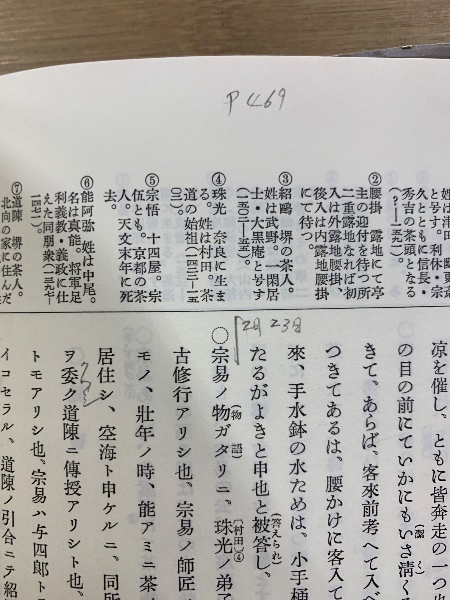 P469
姓は津田
と号す。利休・宗
久とともに信長・
秀吉の茶頭となる
(?―一五九一)。
②腰掛 露地にて亭
主の迎付を待つ所
二重露地なれば初
入は外露地腰掛、
後入は内露地腰掛
にて待つ。
③紹鷗 堺の茶人。
姓は武野。一閑居
士・大黒庵と号す
(一五〇二―一五五五)。
④珠光 奈良に生ま
る。姓は村田。茶
道の始祖(一四二三―一五
〇二)。
⑤宗悟 十四屋。宗
伍とも。京都の茶
人。天文末年に死
去。
⑥能阿弥 姓は中尾。
名は真能。将軍足
利義教・義政に仕
えた同朋衆(一三九七―
一四七一)。
⑦道陳 堺の茶人。
北向の家に住んだ
2月23日
凉を催し、ともに皆奔走の一つ
の目の前にていかにもいさ淸く
(潔し)
きて、あらば、客來前考へて入べ
つきてあるは、腰かけに客入て
來、手水鉢の水ためは、小手桶
たるがよきと申也と被答し、
(答えられ)
○宗易ノ物ガタリニ、珠光ノ弟子
(物語)
(村田)④
古修行アリシ也、宗易ノ師匠
モノ、壯年ノ時、能アミニ茶
居住シ、空海ト申ケルニ、同所
ヲ委ク道陳ニ傳授アリシト也、
トモアリシ也、宗易ハ与四郎ト
イコセラル、道陳ノ引合ニテ紹